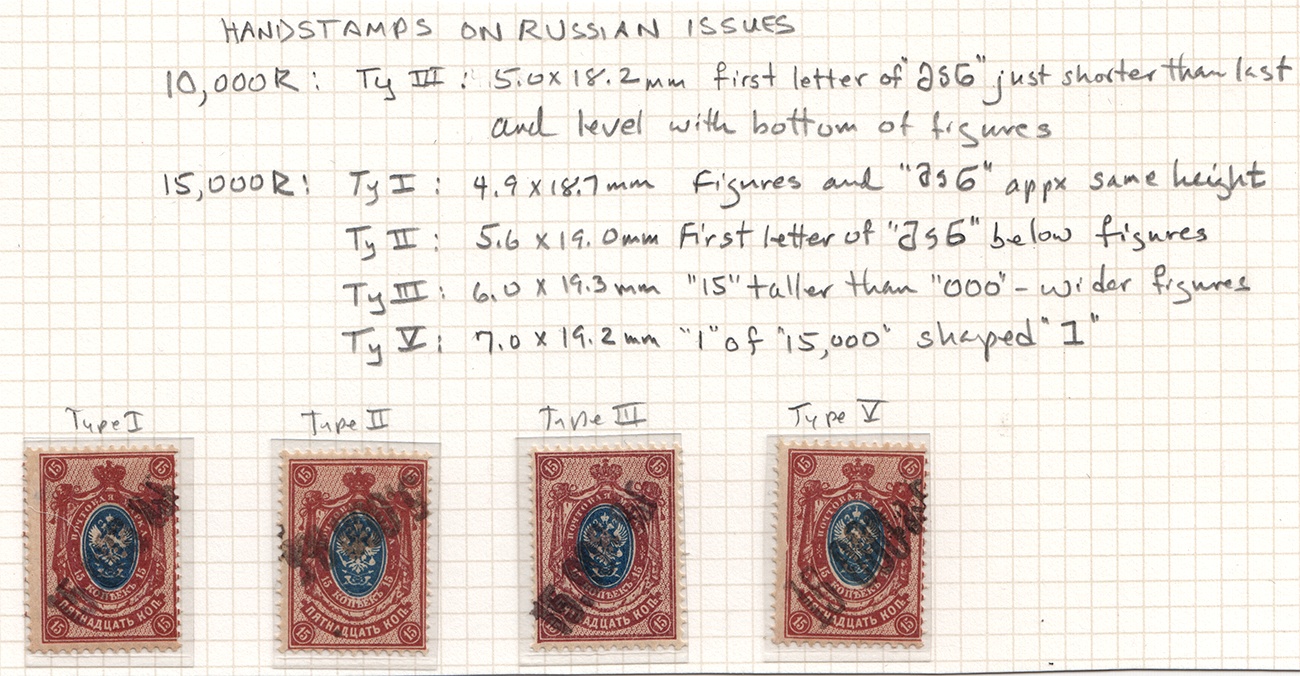 HANDSTAMPS ON RUSSIAN ISSUES
10,000R: Ty III: 5.0 x 18.2mm first letter of "მან" just shorter than last
and level with bottom of figures
15,000R: Ty I: 4.9 x 18.7mm Figures and "მან" appx same height
Ty II: 5.6 x 19.0mm First letter of "მან" below figures
Ty III: 6.0 x 19.3mm "15" taller than "000" - wider figures
Ty V: 7.0 x 19.2mm "1" of "15,000" shaped "I"
Type I Type II Type III Type V
15 15 15 15 15 15 15 15
ПОЧТОВАЯ ПОЧТОВАЯ ПОЧТОВАЯ ПОЧТОВАЯ
15 15 15 15 15 15 15
КОПѢЕКЪ КОПѢЕКЪ КОПѢЕКЪ КОПѢЕКЪ
ПЯТНАДЦАТЬ КОП. ПЯТНАДЦАТЬ КОП. ПЯТНАДЦАТЬ КОП. ПЯТНАДЦАТЬ КОП.
15 15 15 15 15